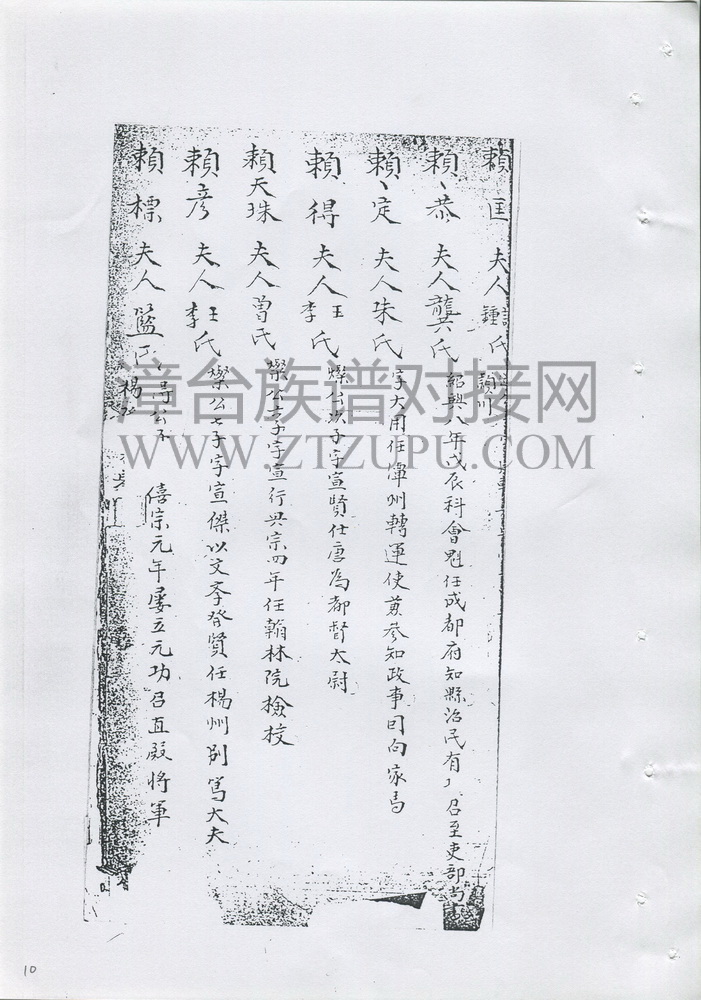 賴匡 夫人鍾氏
賴恭 夫人龔氏 紹興八年戊辰科會魁任成都府知縣治民有召至吏部尚書
賴定 夫人朱氏 字大用任漳州轉運使兼參知政事回向家焉
賴得 夫人王氏李氏 燦公次子字宣賢仕唐為都督太尉
賴天珠 夫人曾氏 燦公六子字宣行興宗四年任翰林院檢校
賴彥 夫人王氏李 燦公七子字宣傑以文孝登賢任楊州別駕大夫
賴標 夫人藍氏楊氏 僖宗元年屡立元功召直殿将軍
漳台族谱对接网
WWW.ZTZUPU.COM
10